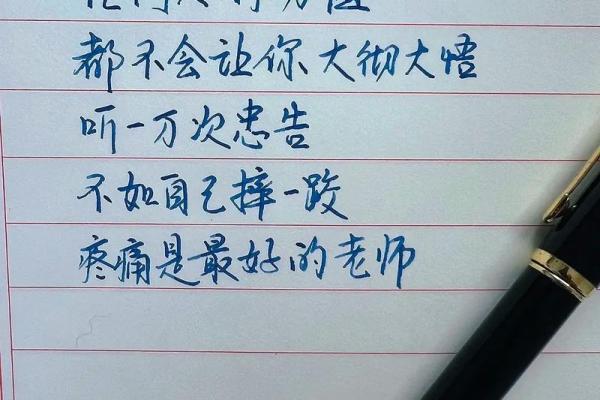 都不会让你大彻大悟
听一万次忠告
不如自己摔一跤
疼痛是最好的老师